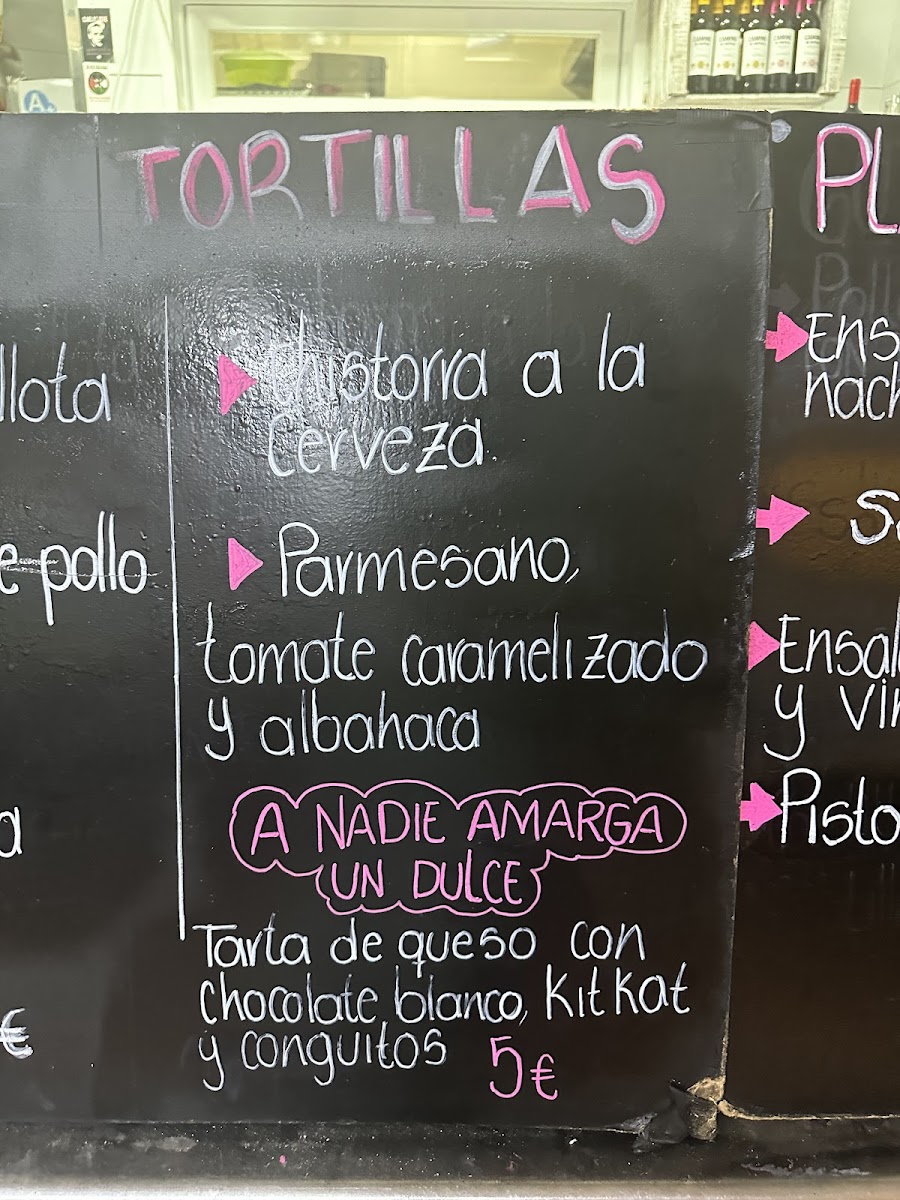 TORTILLAS
Chistorra a la
cerveza.
Parmesano,
tomate caramelizado
y albahaca
A NADIE AMARGA
UN DULCE
Tarta de queso con
chocolate blanco, KitKat
y conguitos 5€
llota
e pollo
a
€
PL
Ens
nach
Ensal
y vin
Pisto